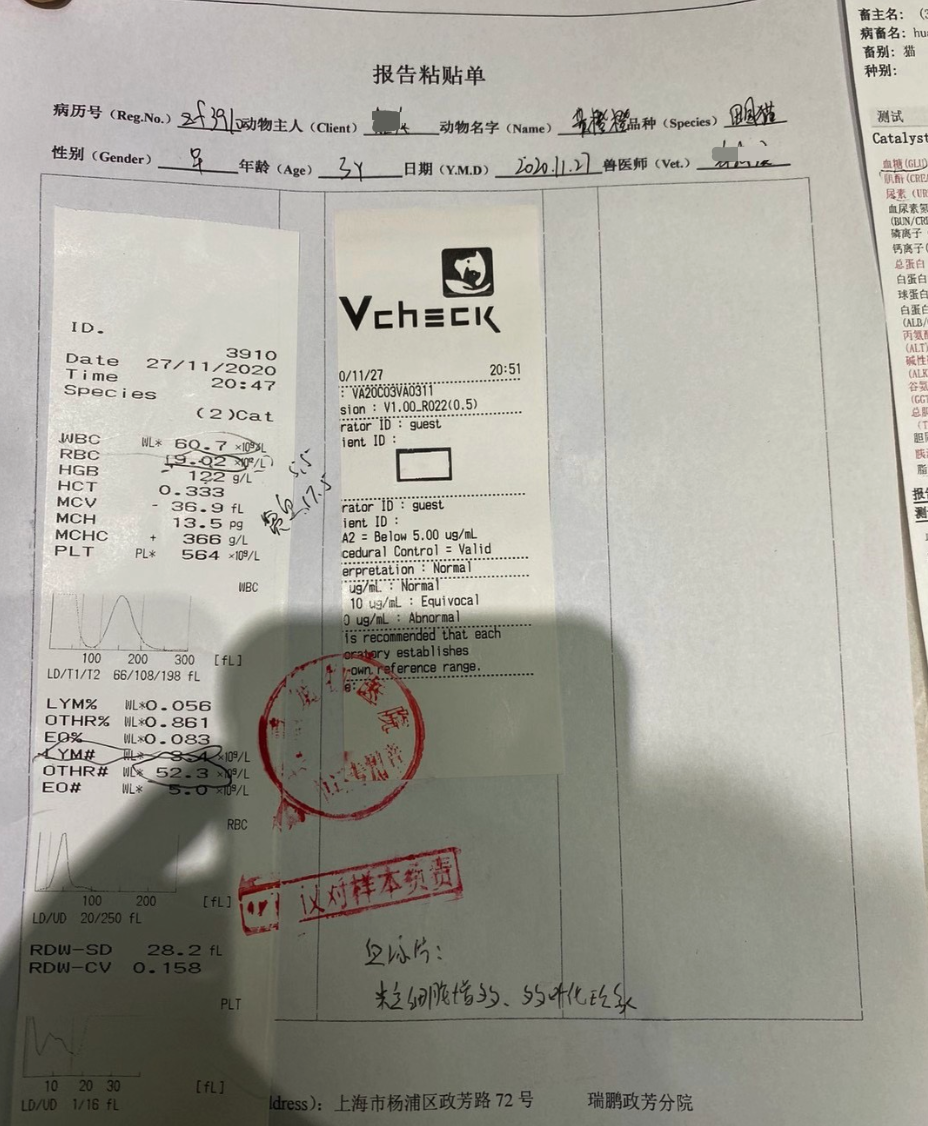 报告粘贴单
病历号（Reg.No.） zf3910 动物主人（Client） 动物名字（Name） 橙橙 品种（Species） 田园猫
性别（Gender） 年龄（Age） 3Y 日期（Y.M.D） 2020.11.27 兽医师（Vet.）
ID.
3910
Date 27/11/2020
Time 20:47
Species
(2)Cat
WBC WL* 60.7 ×10⁹/L
RBC 9.02 ×10¹²/L
HGB - 122 g/L
HCT 0.333
MCV - 36.9 fL
MCH 13.5 pg
MCHC + 366 g/L
PLT PL* 564 ×10⁹/L
5.5
17.5
WBC
100 200 300 [fL]
LD/T1/T2 66/108/198 fL
LYM% WL*0.056
OTHR% WL*0.861
EO% WL*0.083
LYM# WL* 3.4 ×10⁹/L
OTHR# WL* 52.3 ×10⁹/L
EO# WL* 5.0 ×10⁹/L
RBC
100 200 [fL]
LD/UD 20/250 fL
RDW-SD 28.2 fL
RDW-CV 0.158
PLT
10 20 30 [fL]
LD/UD 1/16 fL
Vcheck
0/11/27 20:51
: VA20C03VA0311
sion : V1.00_R022(0.5)
rator ID : guest
ient ID :
rator ID : guest
ient ID :
A2 = Below 5.00 ug/mL
cedural Control = Valid
erpretation : Normal
ug/mL : Normal
10 ug/mL : Equivocal
0 ug/mL : Abnormal
is recommended that each
oratory establishes
own reference range.
e:
仅对样本负责
血涂片：
粒细胞增多、多
ddress）：上海市杨浦区政芳路72号 瑞鹏政芳分院
畜主名：
病畜名：hu
畜别：猫
种别：
测试
Catalyst
血糖(GLU
肌酐(CRE
尿素(UR
血尿素氮
(BUN/CRE
磷离子
钙离子(
总蛋白
白蛋白
球蛋白
白蛋白
(ALB/
丙氨酸
(ALT)
碱性
(ALK
谷氨
(GGT
总胆
(T